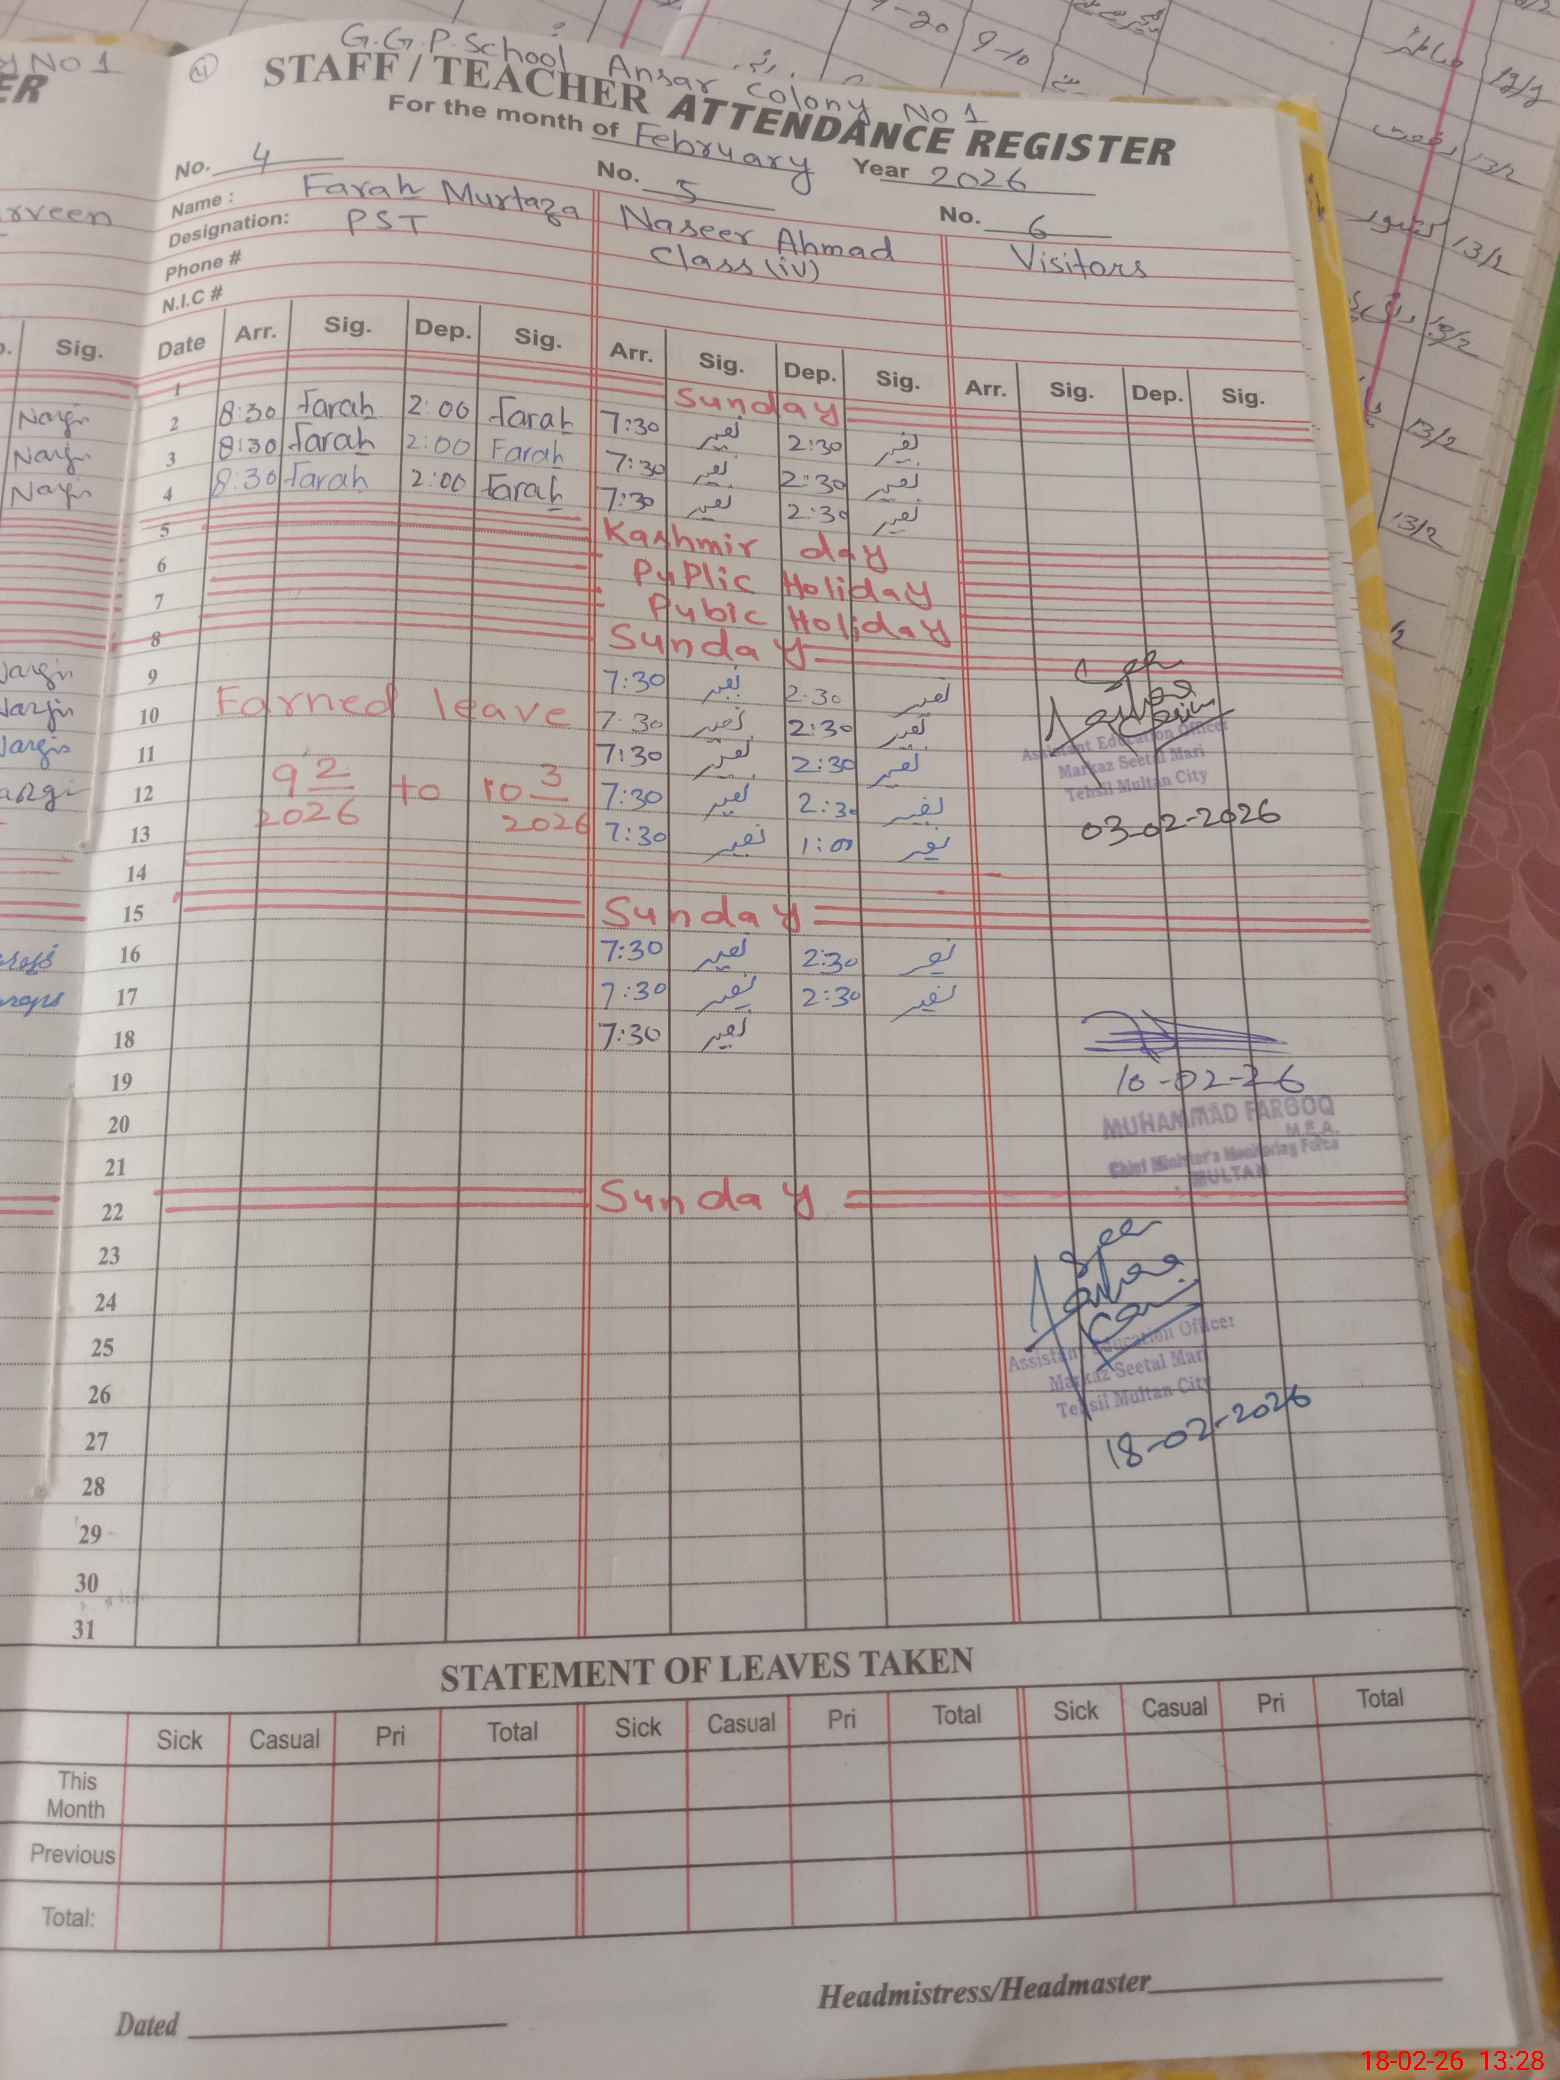 G.G.P. School Ansar Colony No 1
4
STAFF / TEACHER ATTENDANCE REGISTER
For the month of February Year 2026
No. 4 No. 5 No. 6
Name : Farah Murtaza Naseer Ahmad Visitors
Designation: PST Class (iv)
Phone #
N.I.C #
Date Arr. Sig. Dep. Sig. Arr. Sig. Dep. Sig. Arr. Sig. Dep. Sig.
1 Sunday
2 8:30 Farah 2:00 Farah 7:30 نصیر 2:30 نصیر
3 8:30 Farah 2:00 Farah 7:30 نصیر 2:30 نصیر
4 8:30 Farah 2:00 Farah 7:30 نصیر 2:30 نصیر
5 Kashmir day
6 PuPlic Holiday
7 Pubic Holiday
8 Sunday
9 7:30 نصیر 2:30 نصیر
10 Earned leave 7:30 نصیر 2:30 نصیر
11 7:30 نصیر 2:30 نصیر
12 9 2/2026 to 10 3/2026 7:30 نصیر 2:30 نصیر
13 7:30 نصیر 1:00 نصیر
14
15 Sunday
16 7:30 نصیر 2:30 نصیر
17 7:30 نصیر 2:30 نصیر
18 7:30 نصیر
19
20
21
22 Sunday
23
24
25
26
27
28
29
30
31
Assistant Education Officer
Markaz Seetal Mari
Tehsil Multan City
03-02-2026
10-02-26
MUHAMMAD FAROOQ
M.E.A.
Chief Minister's Monitoring Force
MULTAN
Assistant Education Officer
Markaz Seetal Mari
Tehsil Multan City
18-02-2026
STATEMENT OF LEAVES TAKEN
Sick Casual Pri Total Sick Casual Pri Total Sick Casual Pri Total
This Month
Previous
Total:
Dated
Headmistress/Headmaster
18-02-26 13:28